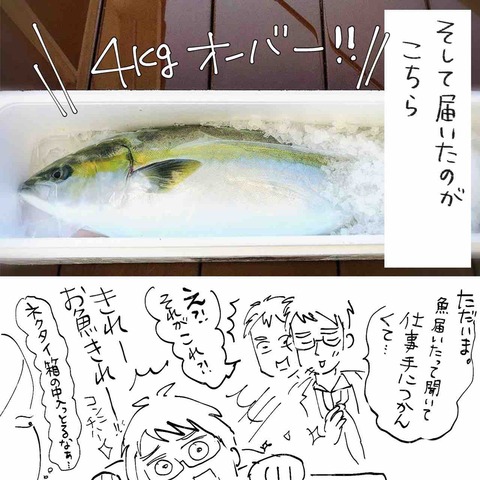 そして届いたのが
こちら
4kgオーバー!!
ただいま。
魚届いたって聞いて
仕事手につかん
くて…
え?!
それがこれ?!
きれー
お魚きれー!!
コンチハ!
ネクタイ箱の中入っとるなぁ…